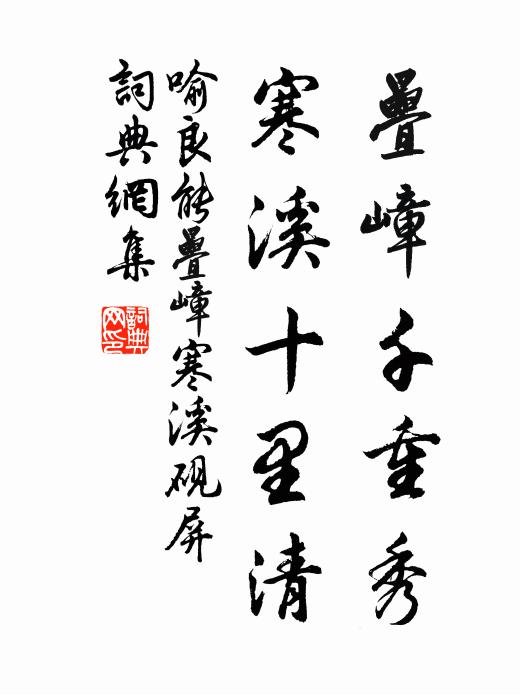 疊嶂千重秀
寒溪十里清
喻良能疊嶂寒溪硯屏
詞典網集
詞典网印